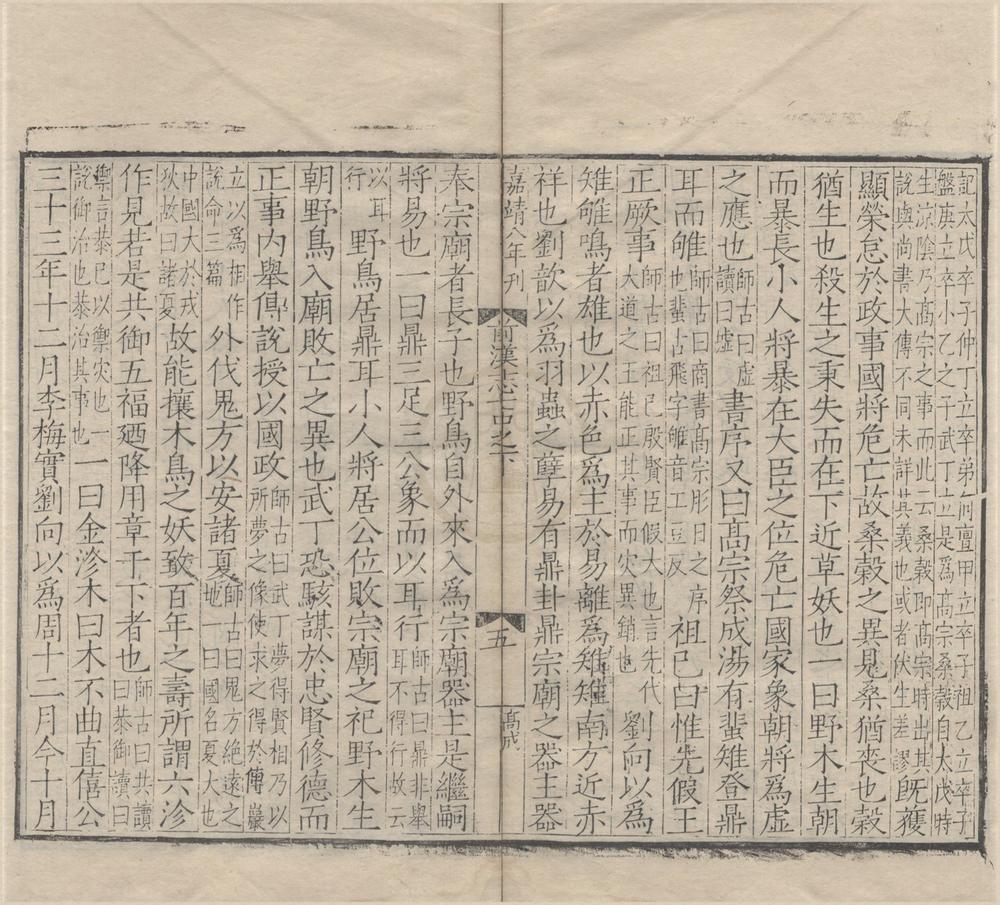 記太戊卒子仲丁立卒弟何亶甲立卒子祖乙立卒子
盤庚立卒小乙之子武丁立是爲髙宗桑榖自太戊時
生涼陰乃髙宗之事而此云桑穀即髙宗時出其
說與尚書大傳不同未詳其義也或者伏生差謬旣獲
顯榮怠於政事國將危亡故桑榖之異見桑猶喪也榖
猶生也殺生之秉失而在下近草妖也一曰野木生朝
而暴長小人將暴在大臣之位危亡國家象朝將爲虛
之應也師古曰虛讀曰墟書序又曰髙宗祭成湯有蜚雉登鼎
耳而雊師古曰商書髙宗肜日之序也蜚古飛字雊音工豆反祖己曰惟先假王
正厥事師古曰祖己殷賢臣假大也言先代大道之王能正其事而灾異銷也劉向以爲
雉雊鳴者雄也以赤色爲主於易離爲雉雉南方近赤
祥也劉歆以爲羽蟲之孽易有鼎卦鼎宗廟之器主器
嘉靖八年刊
前漢志二十七中之下
五
髙成
奉宗廟者長子也野鳥自外來入爲宗廟器主是繼嗣
將易也一曰鼎三足三公象而以耳行師古曰鼎非舉耳不得行故云
以耳行野鳥居鼎耳小人將居公位敗宗廟之祀野木生
朝野鳥入廟敗亡之異也武丁恐駭謀於忠賢修德而
正事内舉傅說授以國政師古曰武丁夢得賢相乃以所夢之像使求之得於傅巖
立以爲相作說命三篇外伐鬼方以安諸夏師古曰鬼方絕遠之地一曰國名夏大也
中國大於戎狄故曰諸夏故能攘木鳥之妖致百年之壽所謂六沴
作見若是共御五福廼降用章于下者也師古曰共讀曰恭御讀曰
禦言恭己以禦灾也一說御治也恭治其事也一曰金沴木曰木不曲直僖公
三十三年十二月李梅實劉向以爲周十二月今十月